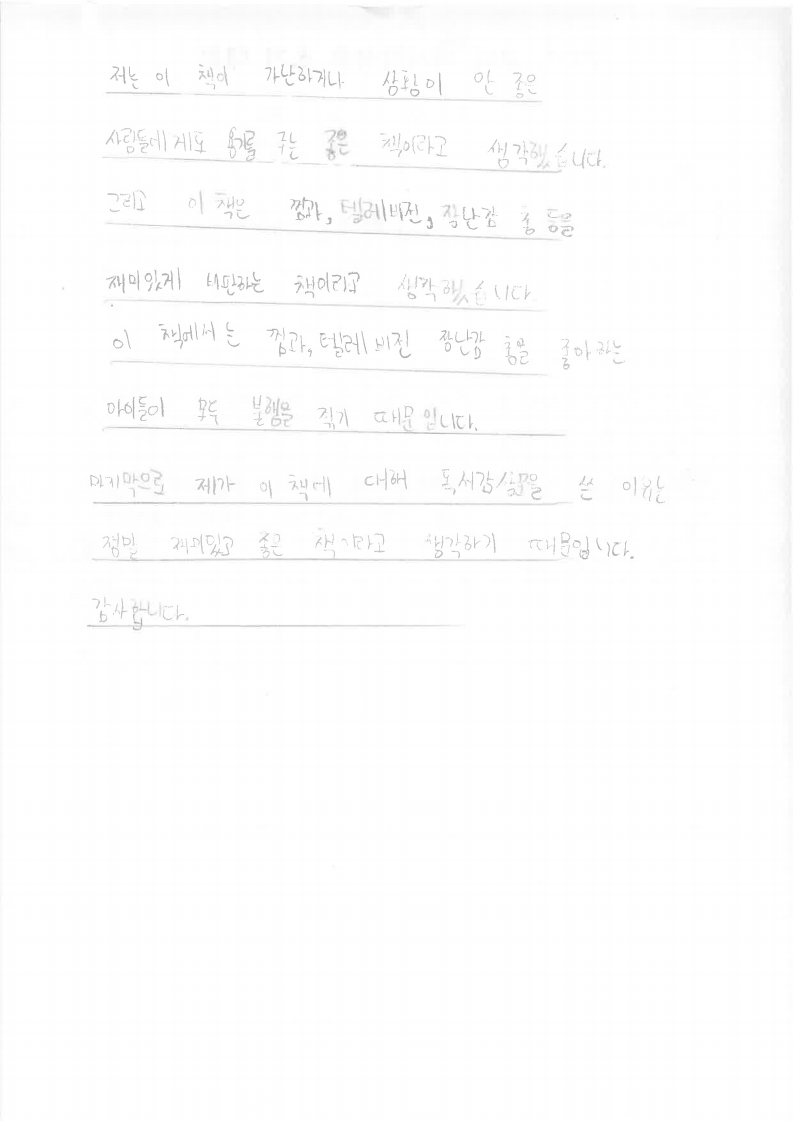 저는 이 책이 가난하거나 상황이 안 좋은
사람들에게도 용기를 주는 좋은 책이라고 생각했습니다.
그리고 이 책은 껌과, 텔레비전, 장난감 총 등을
재미있게 비판하는 책이라고 생각했습니다
이 책에서는 껌과, 텔레비전 장난감 총을 좋아하는
아이들이 모두 불행을 겪기 때문입니다.
마지막으로 제가 이 책에 대해 독서감상문을 쓴 이유는
정말 재미있고 좋은 책이라고 생각하기 때문입니다.
감사합니다.